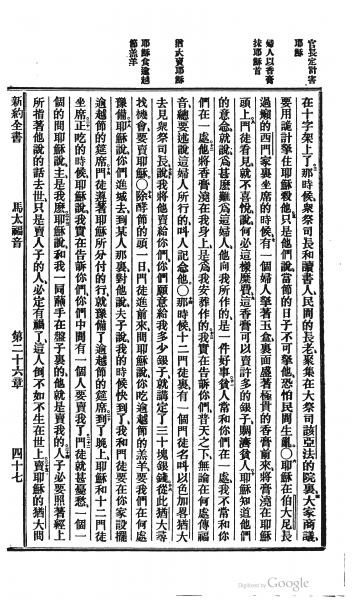 官長定計害
耶穌
婦人以香膏
抹耶穌首
猶大賣耶穌
耶穌食逾越
節羔羊
在十字架上了、那時候衆祭司長和讀書人民間的長老聚集在大祭司該亞法的院裏、大家商議、
要用詭計拏住耶穌殺他只是他們說當節的日子不可拏他恐怕民間生亂○耶穌在伯大尼長
過癩的西門家裏坐席的時候有一個婦人拏著玉盒裏面盛著極貴的香膏前來將膏澆在耶穌
頭上門徒看見就不喜悅說何必這樣糜費這香膏可以賣許多的銀子賙濟貧人耶穌知道他們
的意念就說爲甚麼難爲這婦人他向我所作的是一件好事貧人常和你們在一處我不常和你
們在一處他將香膏澆在我身上是爲我安葬作的我實在告訴你們普天之下無論在何處傳福
音總要述說這婦人所行的叫人記念他○那時候十二門徒裏有一個門徒名叫以色加畧猶大
去見衆祭司長說我將他賣給你們你們願意給我多少銀子就講定了三十塊銀錢從此猶大尋
找機會要賣耶穌○除酵節的頭一日門徒進前來問耶穌說你吃逾越節的羔羊要我們在何處
豫備耶穌說你們進城去到某人那裏對他說夫子說我的時候快到了我和門徒要在你家設擺
逾越節的筵席門徒遵著耶穌所分付的行就豫備了逾越節的筵席到了晚上耶穌和十二門徒
坐席正吃的時候耶穌說我實在告訴你們你們中間有一個人要賣我了門徒就甚憂愁一個一
個的問耶穌說主是我麼耶穌說和我一同蘸手在盤子裏的他就是賣我的人子必要照著經上
所指著他說的話去世只是賣人子的人必定有禍了這人倒不如不生在世上賣耶穌的猶大問
新約全書 馬太福音 第二十六章 四十七
Digitized by Google